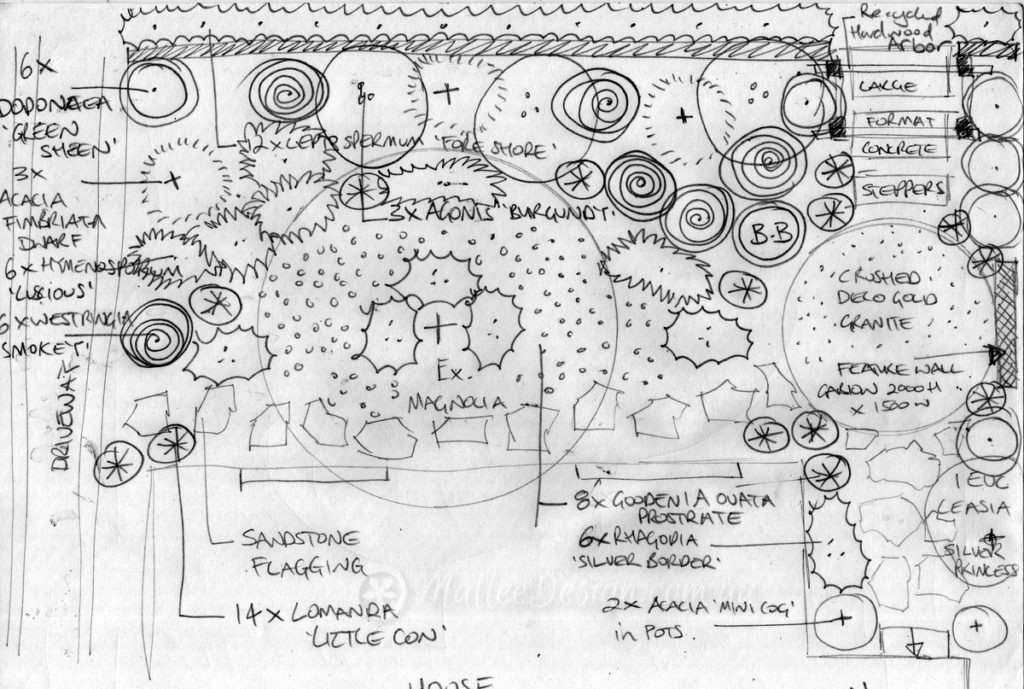 Recycled
Hardwood
Arbor
6x
DODONAEA
'GREEN
SHEEN'
LARGE
FORMAT
CONCRETE
STEPPERS
12x LEPTOSPERMUM 'FORESHORE'
3x
ACACIA
FIMBRIATA
DWARF
3x AGONIS 'BURGUNDY'
B.B
6x HYMENOSPORUM
'LUSCIOUS'
CRUSHED
DECO GOLD
GRANITE
6x WESTRINGIA
SMOKEY'
Ex.
MAGNOLIA
FEATURE WALL
2000H
x 1500W
DRIVEWAY
8x GOODENIA OVATA
PROSTRATE
6x RHAGODIA
'SILVER BORDER'
1 EUC
LEASIA
SILVER
PRINCESS
SANDSTONE
FLAGGING
14x LOMANDRA
'LITTLE CON'
2x ACACIA 'MINI COG'
in POTS
MalleeDesign.com.au
HOUSE